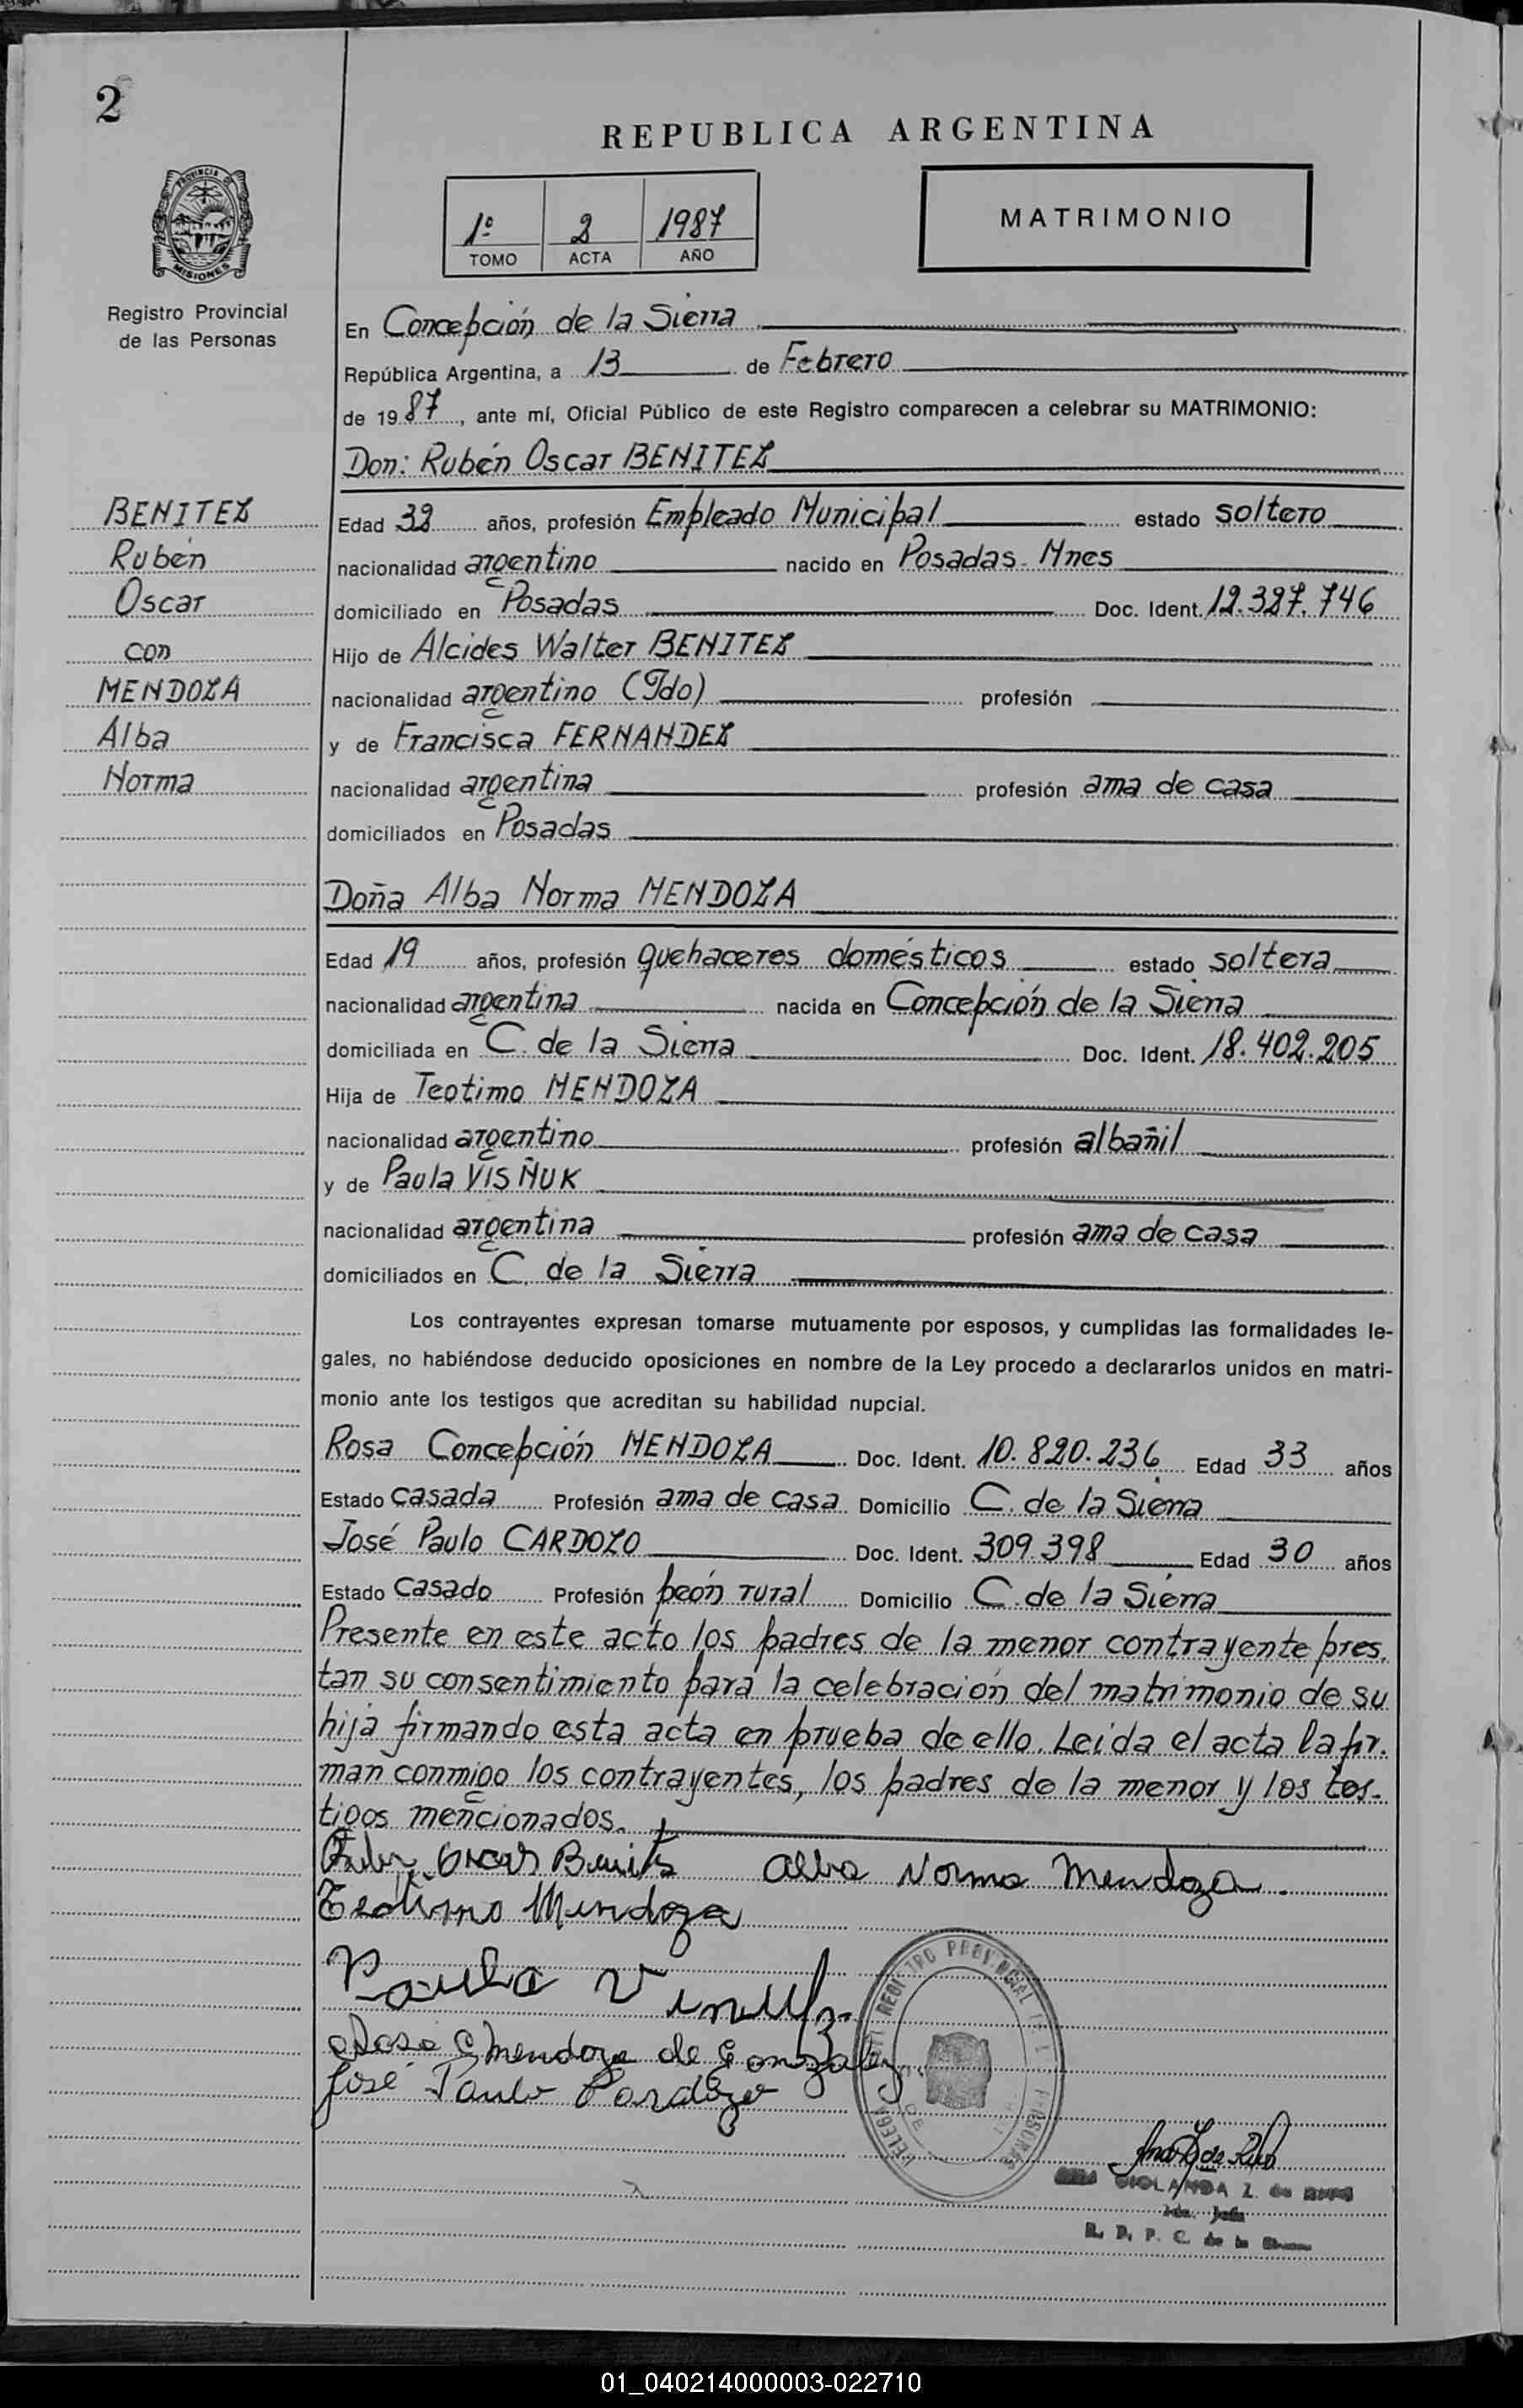 2
REPUBLICA ARGENTINA
PROVINCIA DE
MISIONES
Registro Provincial
de las Personas
1º 2 1987
TOMO ACTA AÑO
MATRIMONIO
En Concepción de la Sierra
República Argentina, a 13 de Febrero
de 1987, ante mí, Oficial Público de este Registro comparecen a celebrar su MATRIMONIO:
Don: Rubén Oscar BENITEZ
BENITEZ
Rubén
Oscar
con
MENDOZA
Alba
Norma
Edad 32 años, profesión Empleado Municipal estado soltero
nacionalidad argentino nacido en Posadas - Mnes
domiciliado en Posadas Doc. Ident. 12.327.746
Hijo de Alcides Walter BENITEZ
nacionalidad argentino (Fdo) profesión
y de Francisca FERNANDEZ
nacionalidad argentina profesión ama de casa
domiciliados en Posadas
Doña Alba Norma MENDOZA
Edad 19 años, profesión quehaceres domésticos estado soltera
nacionalidad argentina nacida en Concepción de la Sierra
domiciliada en C. de la Sierra Doc. Ident. 18.402.205
Hija de Teotimo MENDOZA
nacionalidad argentino profesión albañil
y de Paula VISÑUK
nacionalidad argentina profesión ama de casa
domiciliados en C. de la Sierra
Los contrayentes expresan tomarse mutuamente por esposos, y cumplidas las formalidades le-
gales, no habiéndose deducido oposiciones en nombre de la Ley procedo a declararlos unidos en matri-
monio ante los testigos que acreditan su habilidad nupcial.
Rosa Concepción MENDOZA Doc. Ident. 10.820.236 Edad 33 años
Estado casada Profesión ama de casa Domicilio C. de la Sierra
José Paulo CARDOZO Doc. Ident. 309.398 Edad 30 años
Estado casado Profesión peón rural Domicilio C. de la Sierra
Presente en este acto los padres de la menor contrayente pres-
tan su consentimiento para la celebración del matrimonio de su
hija firmando esta acta en prueba de ello. Leida el acta la fir-
man conmigo los contrayentes, los padres de la menor y los tes-
tigos mencionados.
Oscar Benitez Alba Norma Mendoza.
Teotimo Mendoza
Paula
Rosa C Mendoza de Gonzalez
José Paulo Cardozo
REGISTRO PROVINCIAL DE PERSONAS
VIOLANDA Z. de
R. P. P. C. de la
01_040214000003-022710